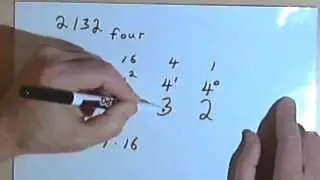 2132 four
16 4 1
2 4¹ 4⁰
3 2
16